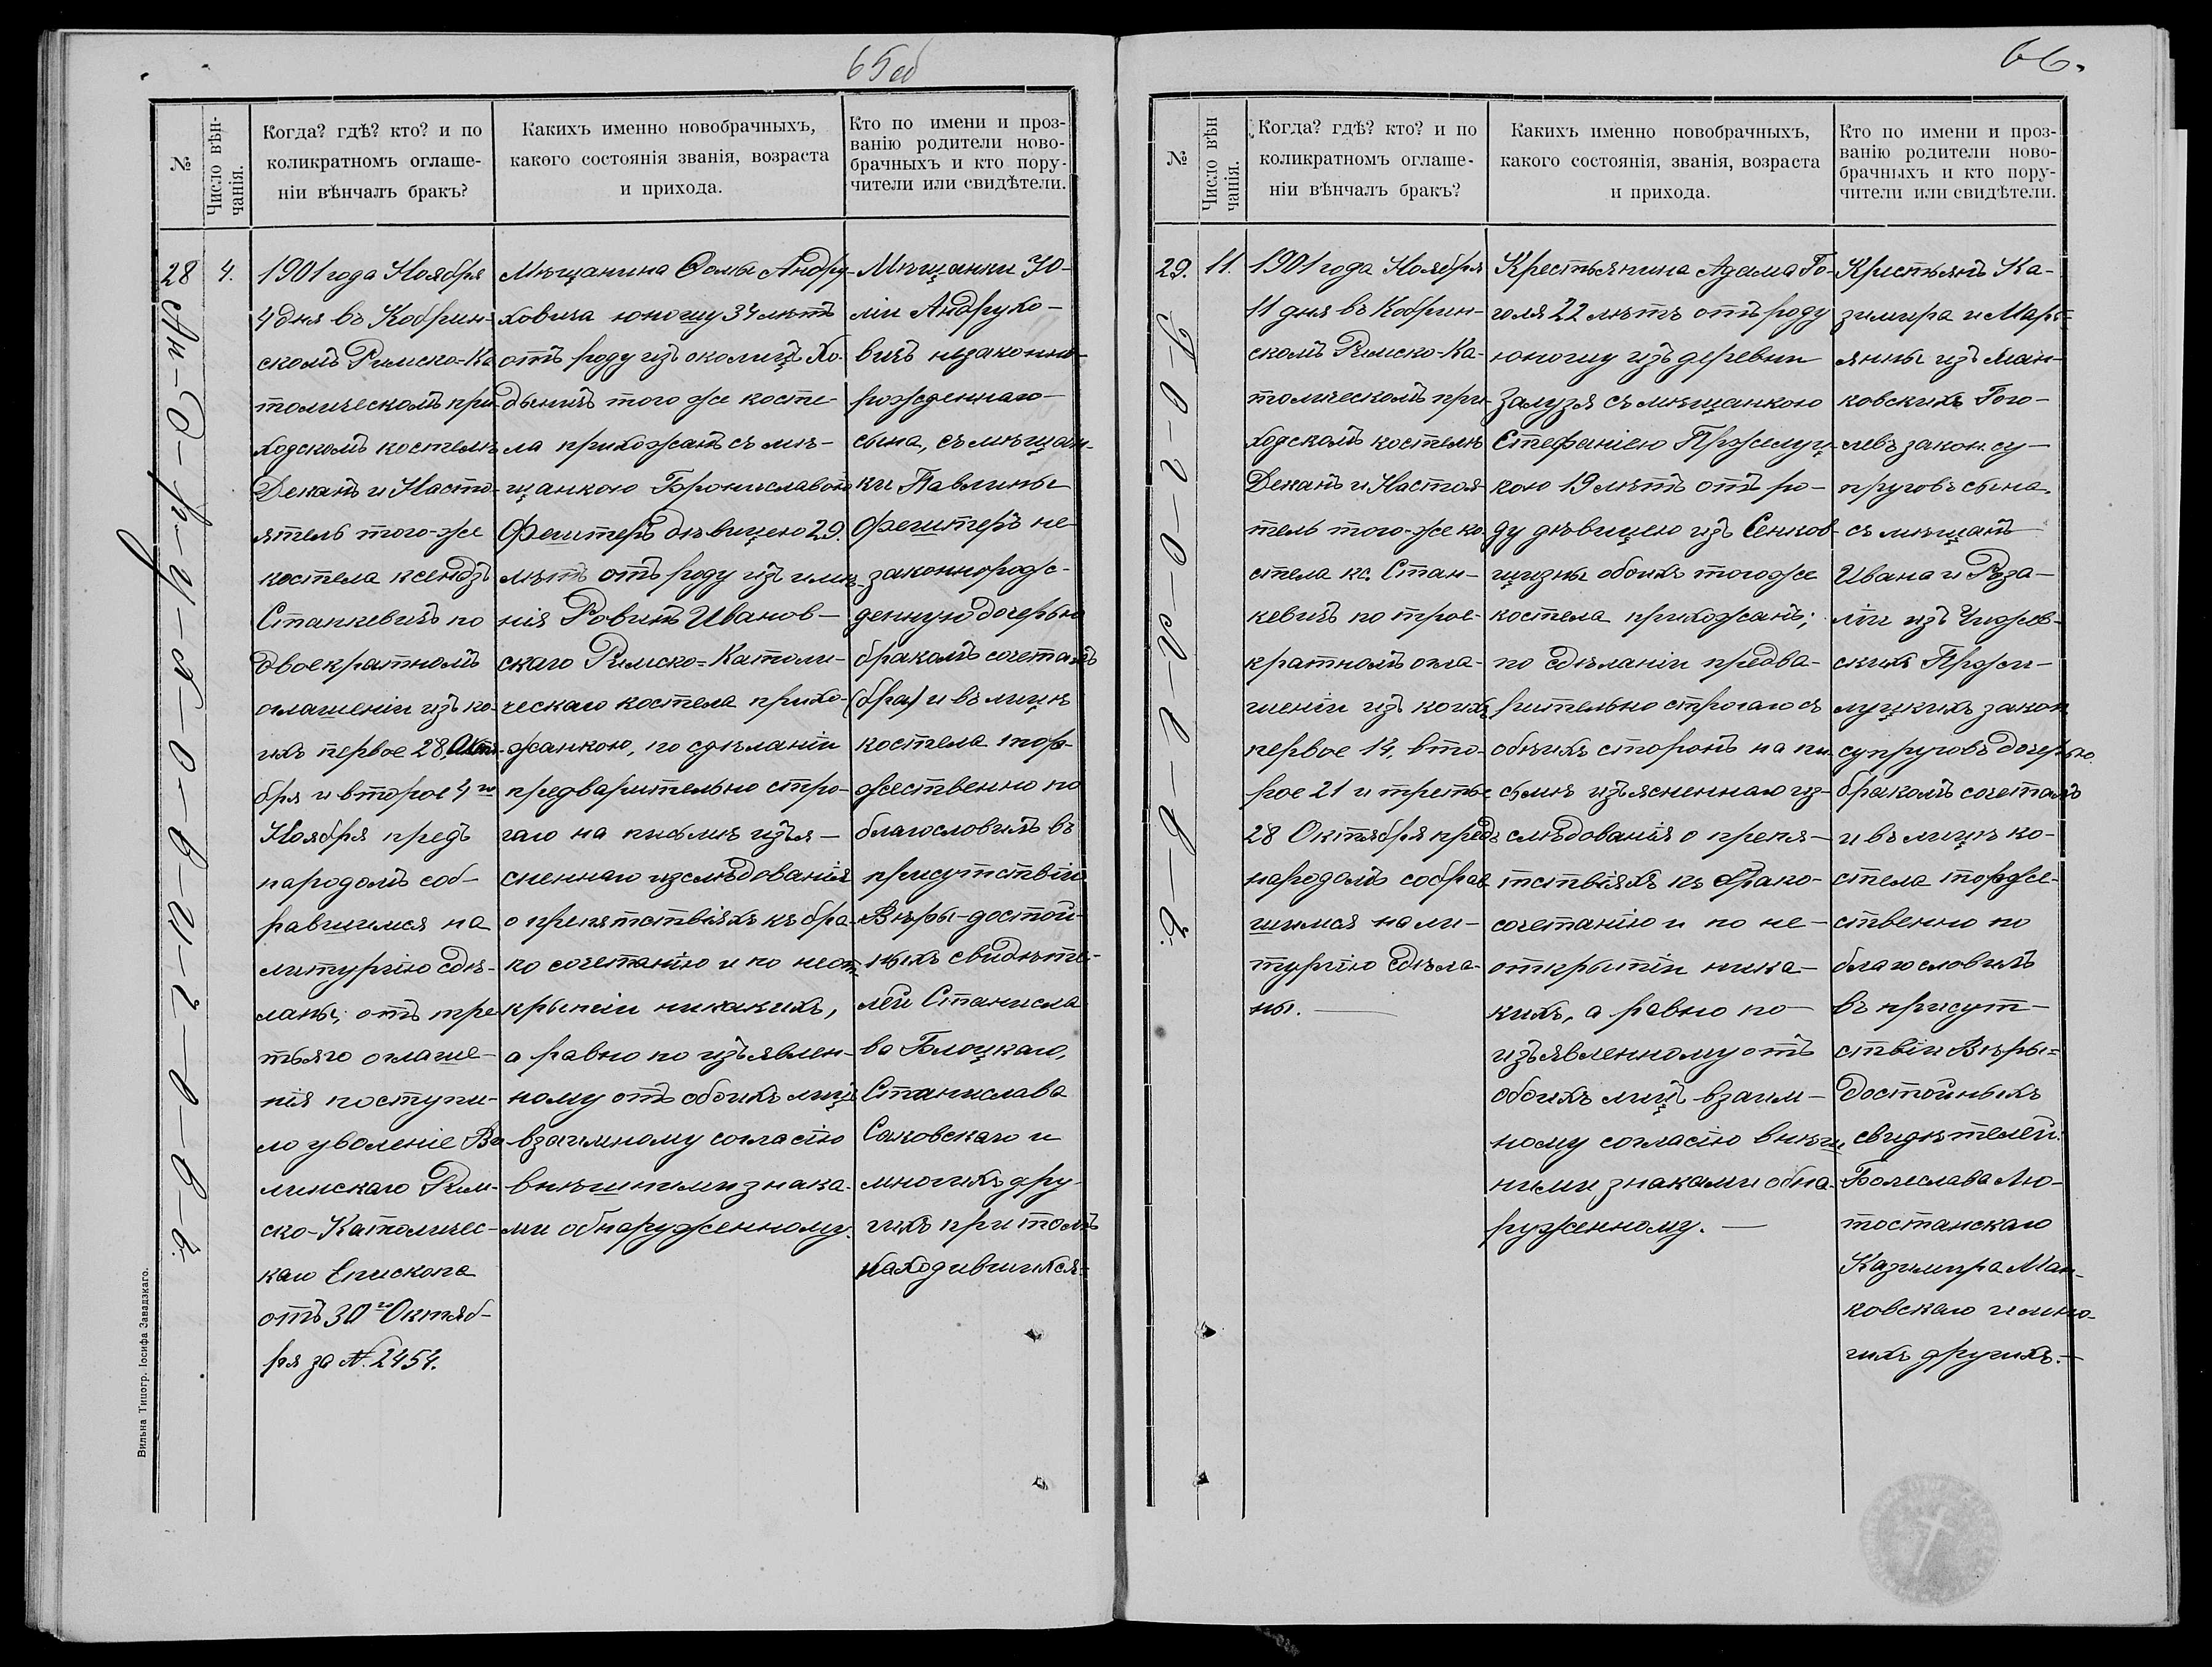 65об
№
Число вѣн-
чанія.
Когда? гдѣ? кто? и по
коликратномъ оглаше-
ніи вѣнчалъ бракъ?
Какихъ именно новобрачныхъ,
какого состоянія званія, возраста
и прихода.
Кто по имени и проз-
ванію родители ново-
брачныхъ и кто пору-
чители или свидѣтели.
28
4.
Андруховичъ.
1901 года Ноября
4 дня въ Кобрин-
скомъ Римско-Ка
толическомъ при-
ходскомъ костелѣ
Деканъ и Насто-
ятель того-же
костела ксендзъ
Станкевичъ по
двоекратномъ
оглашеніи изъ ко-
ихъ первое 28 Октя-
бря и второе 4го
Ноября предъ
народомъ соб-
равшимся на
литургію сдѣ-
ланы; отъ тре
тьяго оглаше-
нія поступи-
ло уволеніе Ви
ленскаго Рим-
ско-Католичес-
каго Епископа
отъ 30го Октяб-
ря за №. 2454.
Мѣщанина Ѳому Андру-
ховича юношу 34 лѣтъ
отъ роду изъ околицъ Хо-
дыничъ того же косте-
ла прихожанъ съ мѣ-
щанкою Брониславою
Фештеръ дѣвицею 29.
лѣтъ отъ роду изъ имѣ-
нія Ровинъ Иванов-
скаго Римско-Католи-
ческаго костела прихо-
жанкою, по сдѣланіи
предварительно стро-
гаго на письмѣ изъя-
сненнаго изслѣдованія
о препятствіяхъ къ бра-
ко сочетанію и по неот
крытіи никакихъ,
а равно по изъявлен-
ному отъ обоихъ лицъ
взаимному согласію
внѣшними знака-
ми обнаруженному.
Мѣщанки Ю-
ліи Андрухо-
вичъ незаконно-
рожденнаго
сына, съ мѣщан-
ки Павлины
Фештеръ не-
законнорож-
денную дочерью
бракомъ сочеталъ
(бра) и въ лицѣ
костела тор-
жественно по
благословилъ въ
присутствіи
Вѣры-достой-
ныхъ свидѣте-
лей Станисла
ва Блоцкаго,
Станислава
Саковскаго и
многихъ дру-
гихъ при томъ
находившихся.
Вильна Типогр. Іосифа Завадзкаго.
66.
№
Число вѣн
чанія.
Когда? гдѣ? кто? и по
коликратномъ оглаше-
ніи вѣнчалъ бракъ?
Какихъ именно новобрачныхъ,
какого состоянія, званія, возраста
и прихода.
Кто по имени и проз-
ванію родители ново-
брачныхъ и кто пору-
чители или свидѣтели.
29.
11.
1901 года Ноября
11 дня въ Кобрин-
скомъ Римско-Ка-
толическомъ при-
ходскомъ костелѣ
Деканъ и Настоя-
тель того-же ко-
стела кс. Стан-
кевичъ по трое-
кратномъ огла-
шеніи изъ коихъ
первое 14, вто-
рое 21 и третье
28 Октября предъ
народомъ собрав
шимся на ли-
тургію сдѣла-
ны.
Крестьянина Адама Го-
голя 22 лѣтъ отъ роду
юношу изъ деревни
Залузя съ мѣщанкою
Стефаніею Пржелуц-
кою 19 лѣтъ отъ ро-
ду дѣвицею изъ Сенков-
щизны обоихъ того же
костела прихожанъ;
по сдѣланіи предва-
рительно строгаго съ
обѣихъ сторонъ на пи-
сьмѣ изъясненнаго из-
слѣдованія о препя-
тствіяхъ къ брако-
сочетанію и по не-
открытіи ника-
кихъ, а равно по
изъявленному отъ
обоихъ лицъ взаим-
ному согласію внѣш-
ними знаками обна-
руженному.
Крестьянъ Ка-
зимира и Марі-
янны изъ Ман-
ковскихъ Гого-
левъ закон. су-
пруговъ сына.
съ мѣщанъ
Ивана и Роза-
ліи изъ
скихъ Прже-
луцкихъ закон.
супруговъ дочерью
бракомъ сочеталъ
и въ лицѣ ко-
стела торже-
ственно по
благословилъ
въ присут-
ствіи Вѣры-
Достойныхъ
свидѣтелей:
Болеслава Лю-
тостанскаго
Казимира Ман-
ковскаго и мно-
гихъ другихъ.